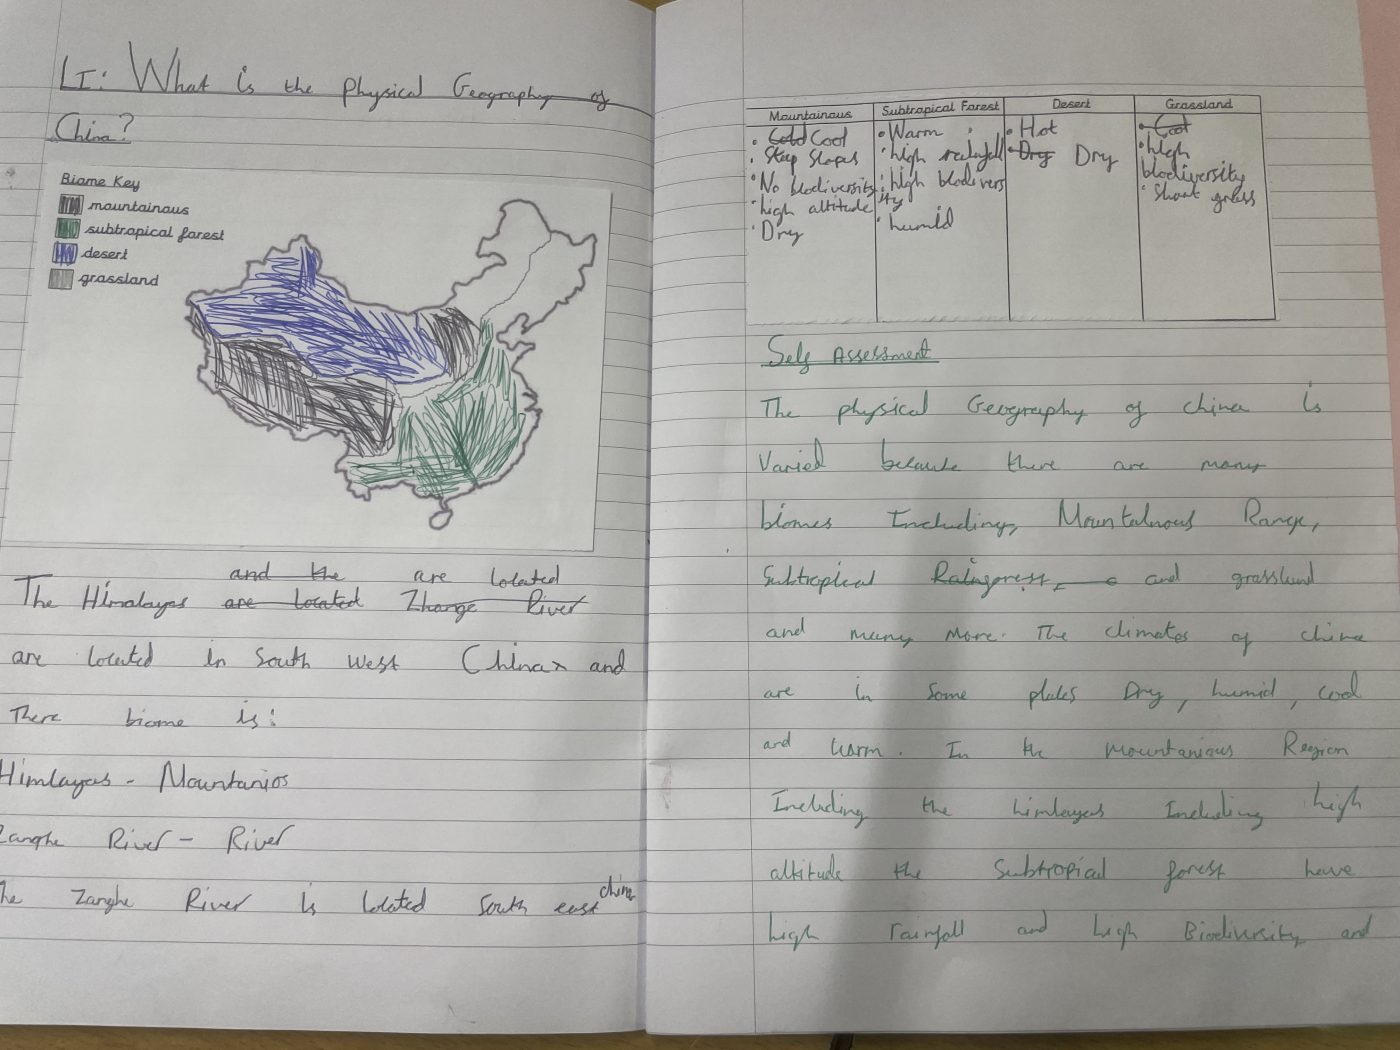 LI: What is the Physical Geography of
China?
Biome Key
mountainous
subtropical forest
desert
grassland
and the are located
The Himalayas are located Zhange River
are located in South west China and
There biome is:
Himlayas - Mountanios
Zanghe River - River
The Zanghe River is located South east china
Mountainous
• Cold Cool
• Steep Slopes
• No biodiversity
• high altitude
• Dry
Subtropical Forest
• Warm
• high rainfall
• high biodivers
ity
• humid
Desert
• Hot
• Dry Dry
Grassland
• Cool
• high
biodiversity
• Short grass
Self Assessment
The physical Geography of china is
Varied because there are many
biomes Including, Mountainous Range,
Subtropical Rainforest, and grassland
and many more. The climates of china
are in some places Dry, humid, cool
and warm. In the mountanious Region
Including the himlayas Including high
altitude the Subtropical forest have
high rainfall and high Biodiversity and